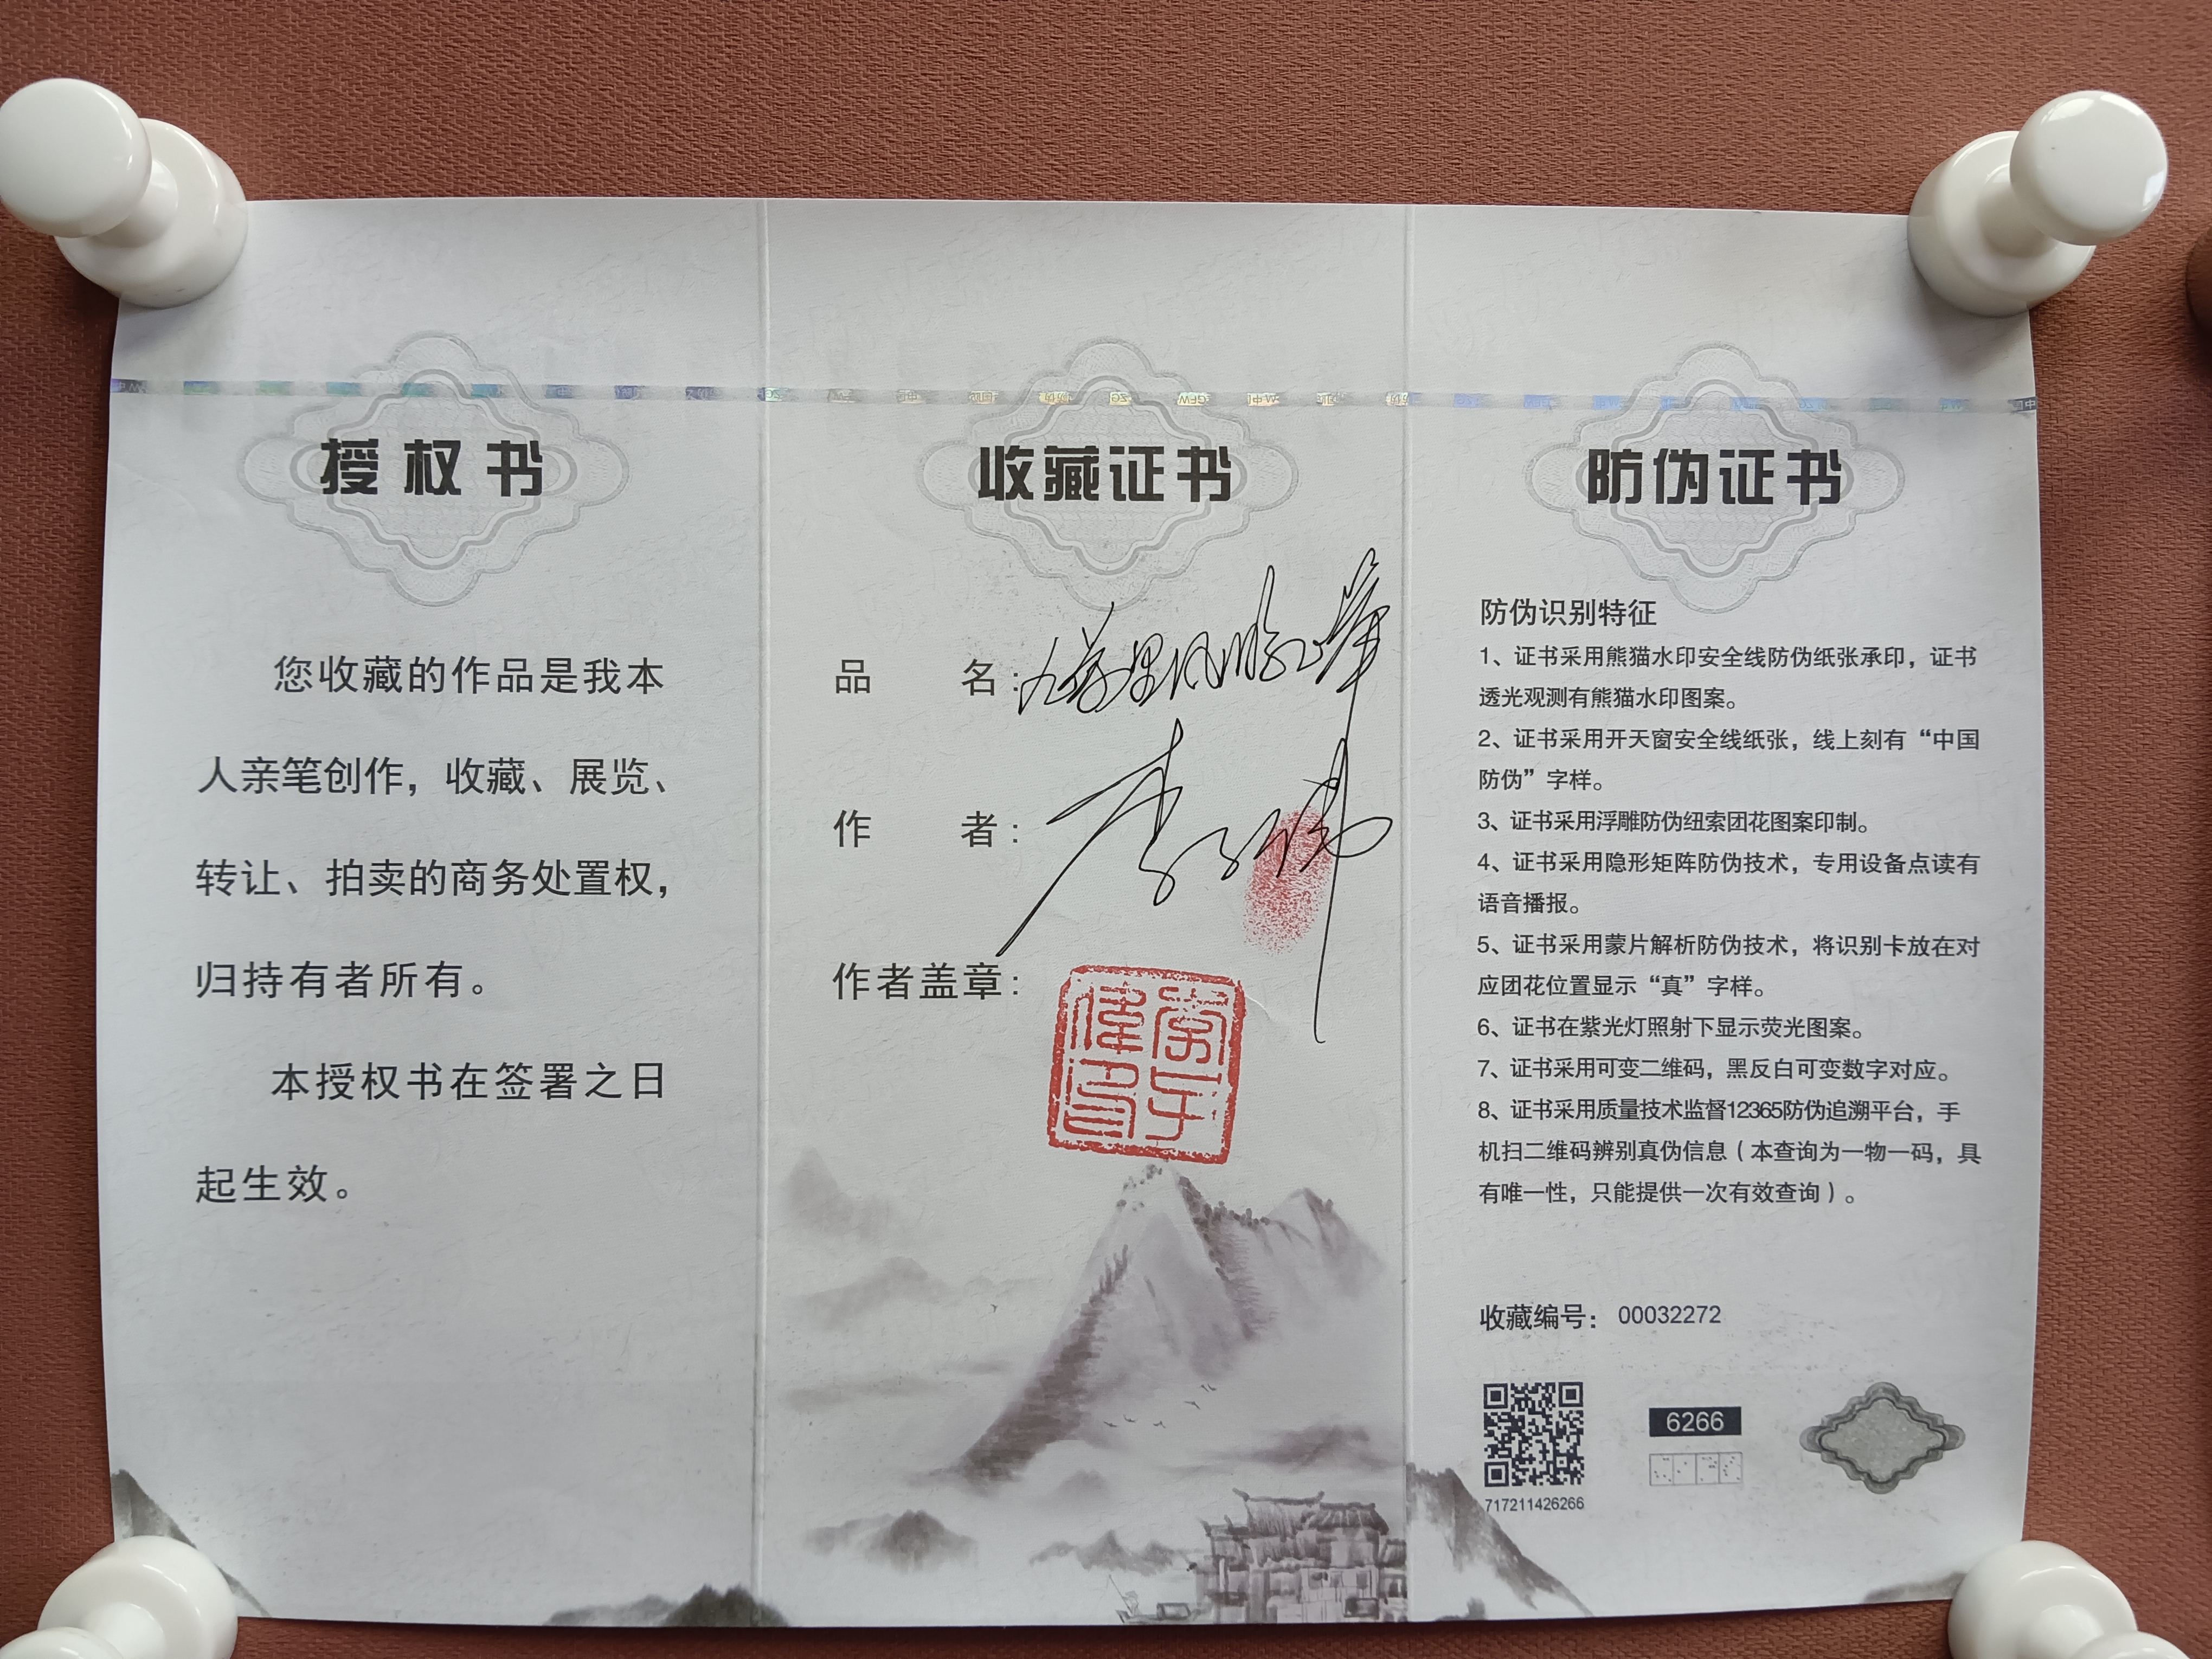 授权书
您收藏的作品是我本
人亲笔创作，收藏、展览、
转让、拍卖的商务处置权，
归持有者所有。
本授权书在签署之日
起生效。
收藏证书
品 名：
作 者：李
作者盖章：
防伪证书
防伪识别特征
1、证书采用熊猫水印安全线防伪纸张承印，证书
透光观测有熊猫水印图案。
2、证书采用开天窗安全线纸张，线上刻有“中国
防伪”字样。
3、证书采用浮雕防伪纽索团花图案印制。
4、证书采用隐形矩阵防伪技术，专用设备点读有
语音播报。
5、证书采用蒙片解析防伪技术，将识别卡放在对
应团花位置显示“真”字样。
6、证书在紫光灯照射下显示荧光图案。
7、证书采用可变二维码，黑反白可变数字对应。
8、证书采用质量技术监督12365防伪追溯平台，手
机扫二维码辨别真伪信息（本查询为一物一码，具
有唯一性，只能提供一次有效查询）。
收藏编号： 00032272
6266
717211426266